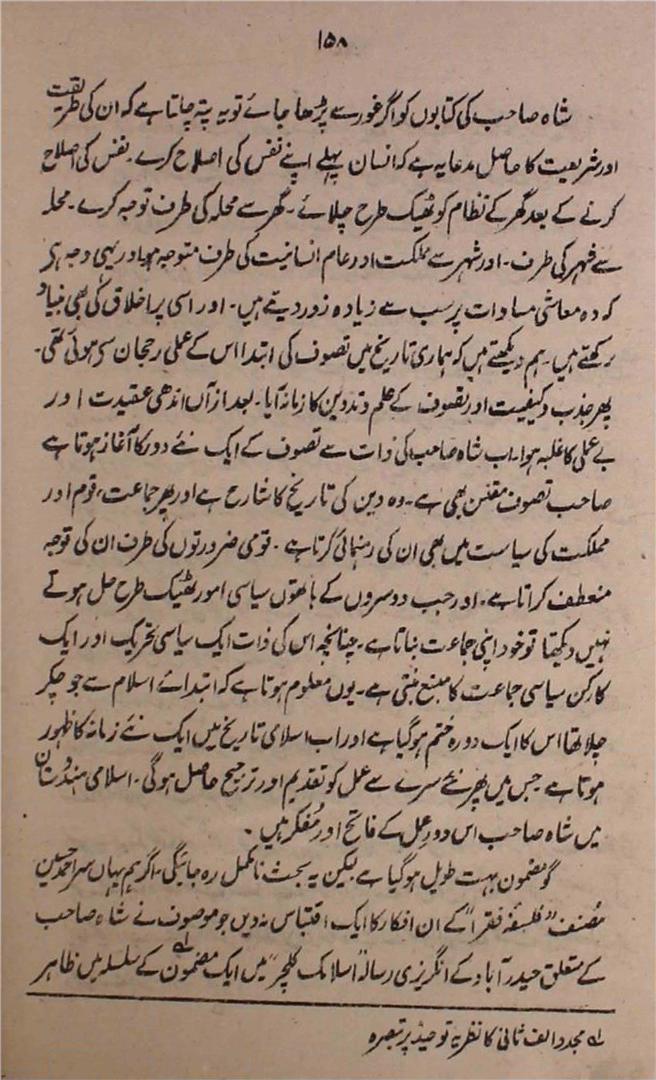 ۱۵۸
شاہ صاحب کی کتابوں کو اگر غور سے پڑھا جائے تو یہ پتہ چلتا ہے کہ ان کی طریقت
اور شریعت کا حاصل مدعا یہ ہے کہ انسان پہلے اپنے نفس کی اصلاح کرے۔ نفس کی اصلاح
کرنے کے بعد گھر کے نظام کو ٹھیک طرح چلائے۔ گھر سے محلہ کی طرف توجہ کرے۔ محلہ
سے شہر کی طرف۔ اور شہر سے مملکت اور عام انسانیت کی طرف متوجہ ہو اور یہی وجہ ہے
کہ وہ معاشی مساوات پر سب سے زیادہ زور دیتے ہیں۔ اور اسی پر اخلاق کی بھی بنیاد
رکھتے ہیں۔ ہم دیکھتے ہیں کہ ہماری تاریخ میں تصوف کی ابتدا اس کے عملی رجحان سے ہوئی تھی۔
پھر جذب و کیفیت اور تصوف کے علم و تدوین کا زمانہ آیا۔ بعد ازاں اندھی عقیدت اور
بے عملی کا غلبہ ہوا۔ اب شاہ صاحب کی ذات سے تصوف کے ایک نئے دور کا آغاز ہوتا ہے
صاحب تصوف مقنن بھی ہے۔ وہ دین کی تاریخ کا شارح ہے اور پھر جماعت، قوم اور
مملکت کی سیاست میں بھی ان کی رہنمائی کرتا ہے۔ قومی ضرورتوں کی طرف ان کی توجہ
منعطف کراتا ہے۔ اور جب دوسروں کے ہاتھوں سیاسی امور ٹھیک طرح حل ہوتے
نہیں دیکھتا تو خود اپنی جماعت بناتا ہے۔ چنانچہ اس کی ذات ایک سیاسی تحریک اور ایک
کارکن سیاسی جماعت کا منبع بنتی ہے۔ یوں معلوم ہوتا ہے کہ ابتدائے اسلام سے جو چکر
چلا تھا اس کا ایک دورہ ختم ہو گیا ہے اور اب اسلامی تاریخ میں ایک نئے زمانہ کا ظہور
ہوتا ہے جس میں پھر نئے سرے سے عمل کو تقدیم اور ترجیح حاصل ہو گی۔ اسلامی ہندوستان
میں شاہ صاحب اس دورِ عمل کے فاتح اور مفکر ہیں۔
گو مضمون بہت طویل ہو گیا ہے لیکن یہ بحث نامکمل رہ جائیگی۔ اگر ہم یہاں سر احمد حسین
مصنف "فلسفۂ فقرا" کے ان افکار کا ایک اقتباس نہ دیں جو موصوف نے شاہ صاحب
کے متعلق حیدرآباد کے انگریزی رسالہ "اسلامک کلچر" میں ایک مضمون؂۱ کے سلسلہ میں ظاہر
؂۱ مجدد الف ثانی کا نظریہ توحید پر تبصرہ